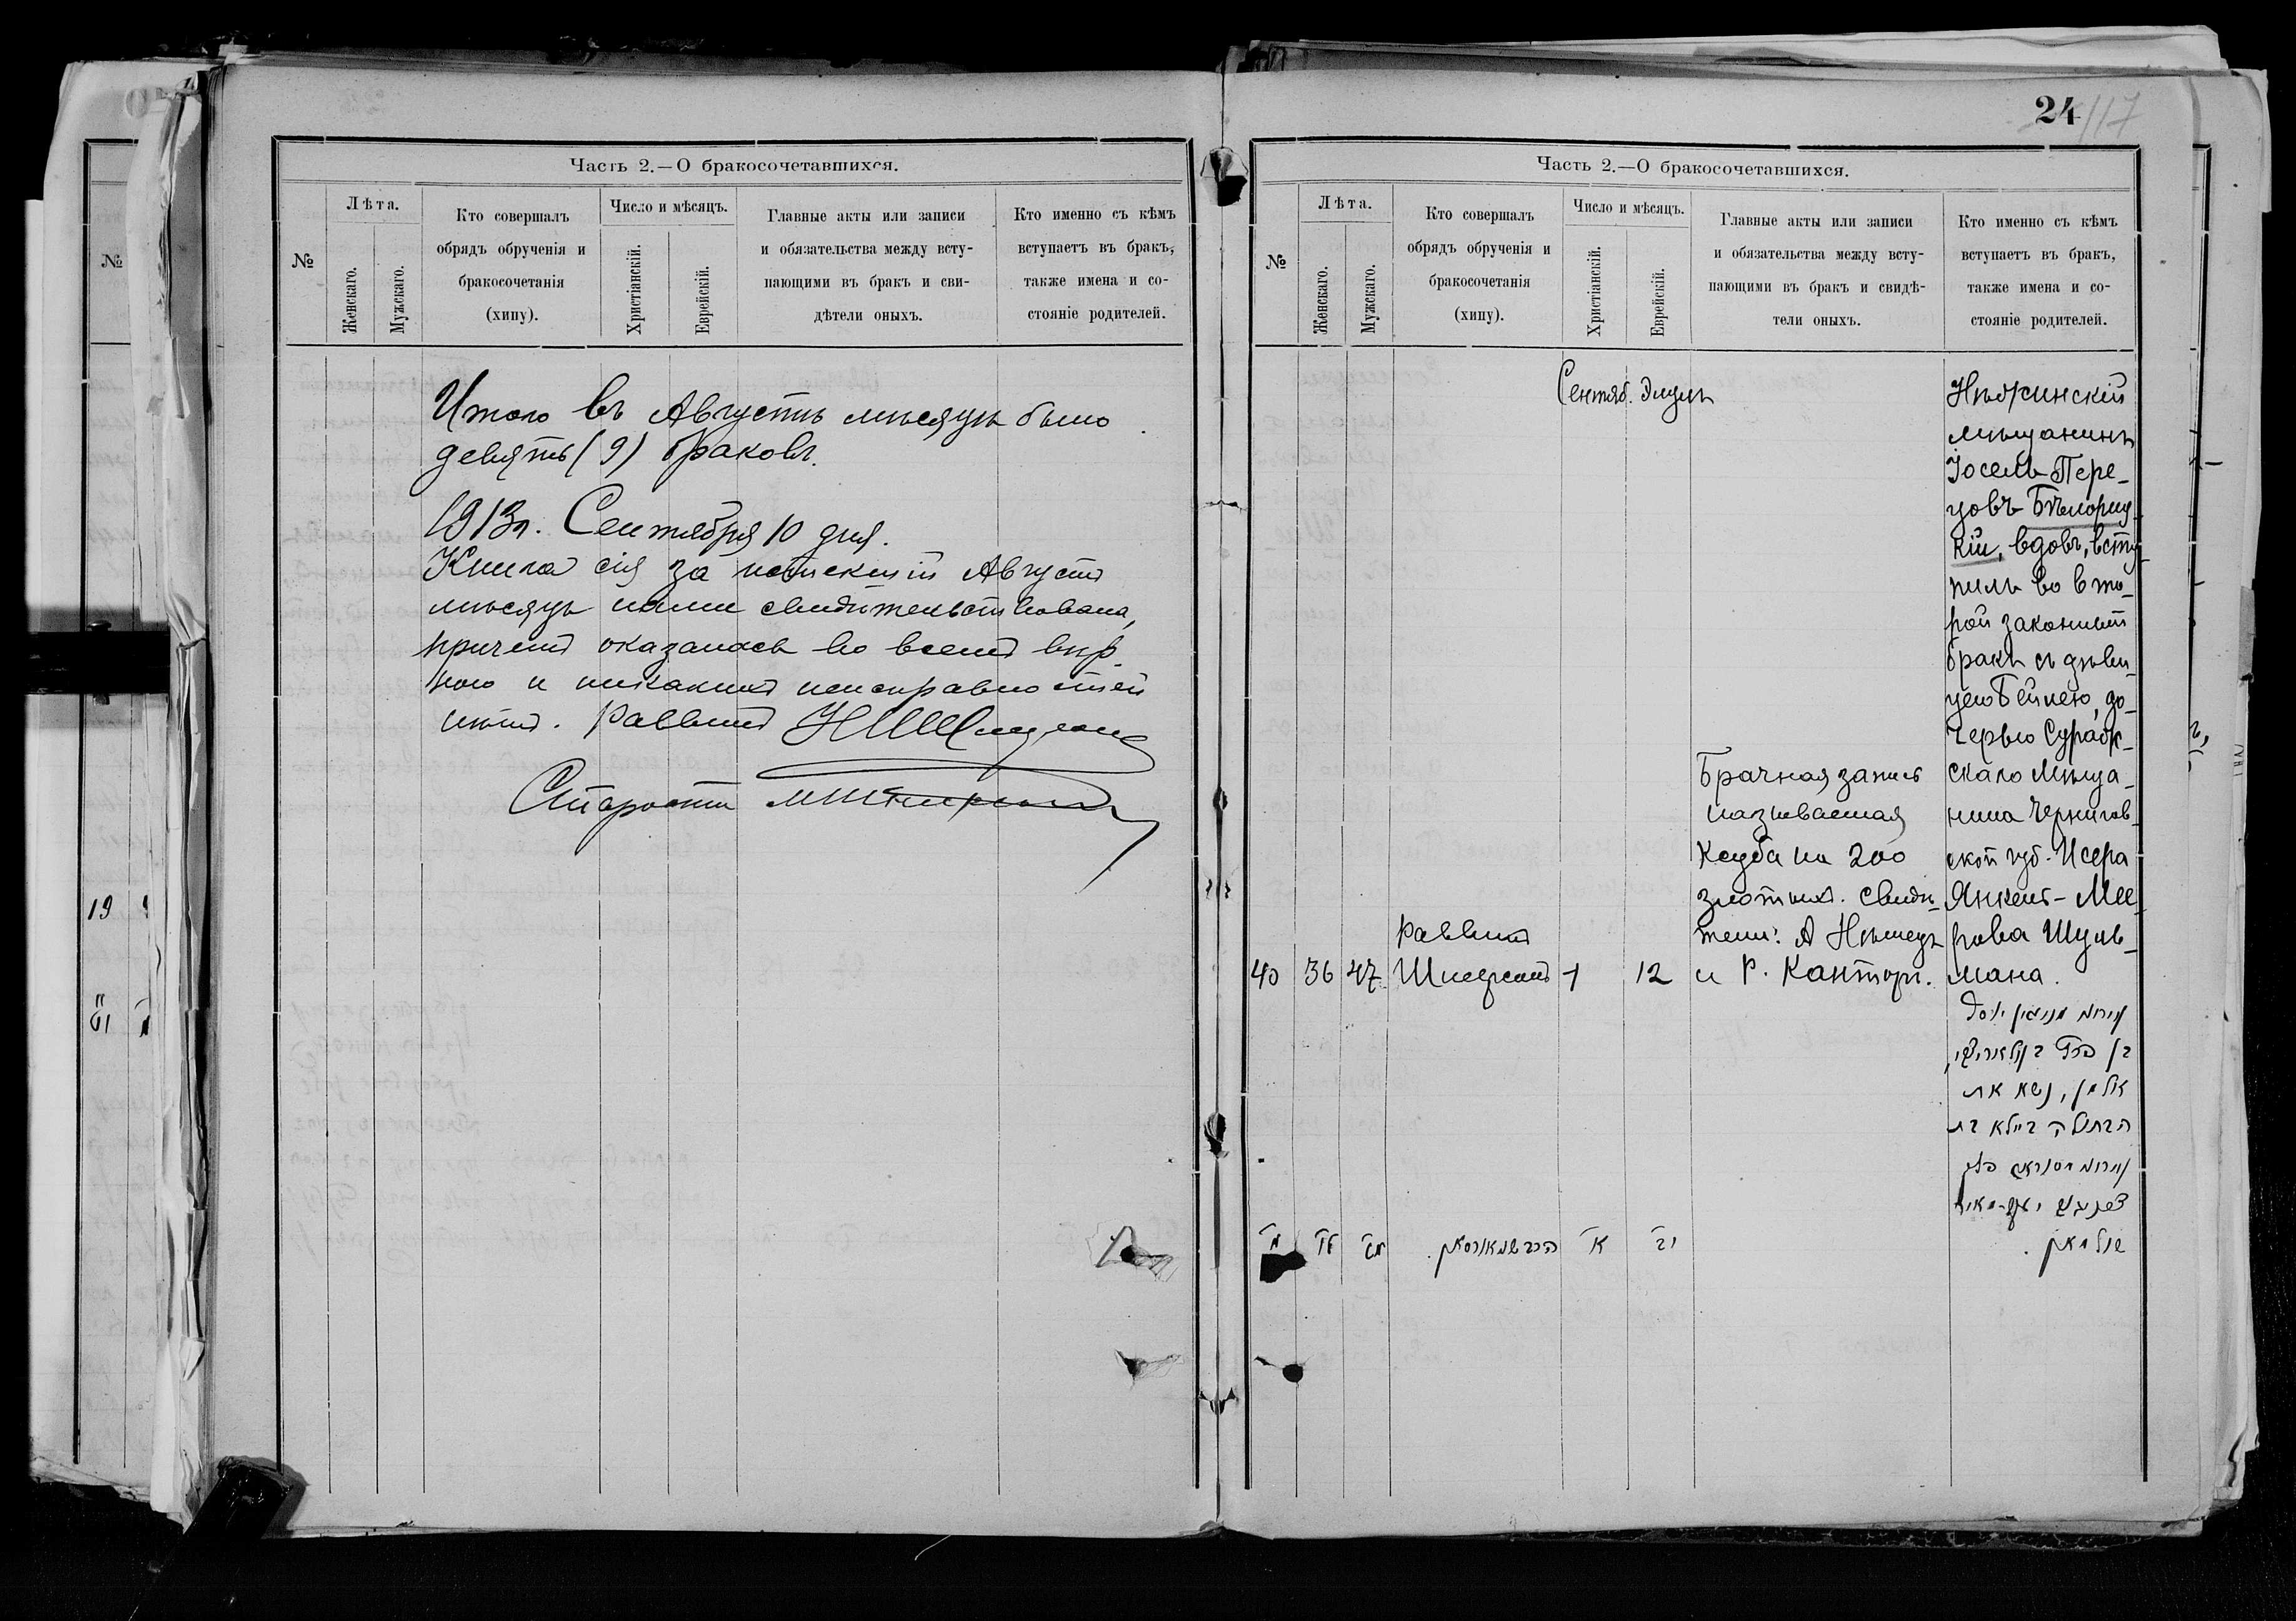 Часть 2.—О бракосочетавшихся.
№
Лѣта.
Женскаго.
Мужскаго.
Кто совершалъ
обрядъ обрученія и
бракосочетанія
(хипу).
Число и мѣсяцъ.
Христіанскій.
Еврейскій.
Главные акты или записи
и обязательства между всту-
пающими въ бракъ и сви-
дѣтели оныхъ.
Кто именно съ кѣмъ
вступаетъ въ бракъ,
также имена и со-
стояніе родителей.
Итого въ Августѣ мѣсяцѣ было
девять (9) браковъ.
1913г. Сентября 10 дня.
Книга сія за истекшій Августъ
мѣсяцъ нами свидѣтельствована,
причемъ оказалась во всемъ вѣр-
ною и никакихъ неисправностей
нѣтъ. Раввинъ
Староста
№
19
24
117
Часть 2.—О бракосочетавшихся.
№
Лѣта.
Женскаго.
Мужскаго.
Кто совершалъ
обрядъ обрученія и
бракосочетанія
(хипу).
Число и мѣсяцъ.
Христіанскій.
Еврейскій.
Главные акты или записи
и обязательства между всту-
пающими въ бракъ и свидѣ-
тели оныхъ.
Кто именно съ кѣмъ
вступаетъ въ бракъ,
также имена и со-
стояніе родителей.
Сентяб. Элулъ
40 36 47
Раввинъ
1 12
Брачная запись
называемая
Ксуба на 200
злотыхъ. Свидѣ-
тели: А Нѣмецъ
и Р. Канторъ.
мѣщанинъ
Іосель Пере-
цовъ Бѣлориц-
кій, вдовъ, всту-
пилъ во вто-
рой законный
бракъ съ дѣви-
цею Бейлею, до-
черью Сураж-
скаго Мѣща-
нина Чернигов-
ской губ. Исера
Янкель-Мее-
рова Шуль-
мана.
אלמן, נשא את
הבתולה ביילא בת
שולמאן.
מ לו מז
א יב